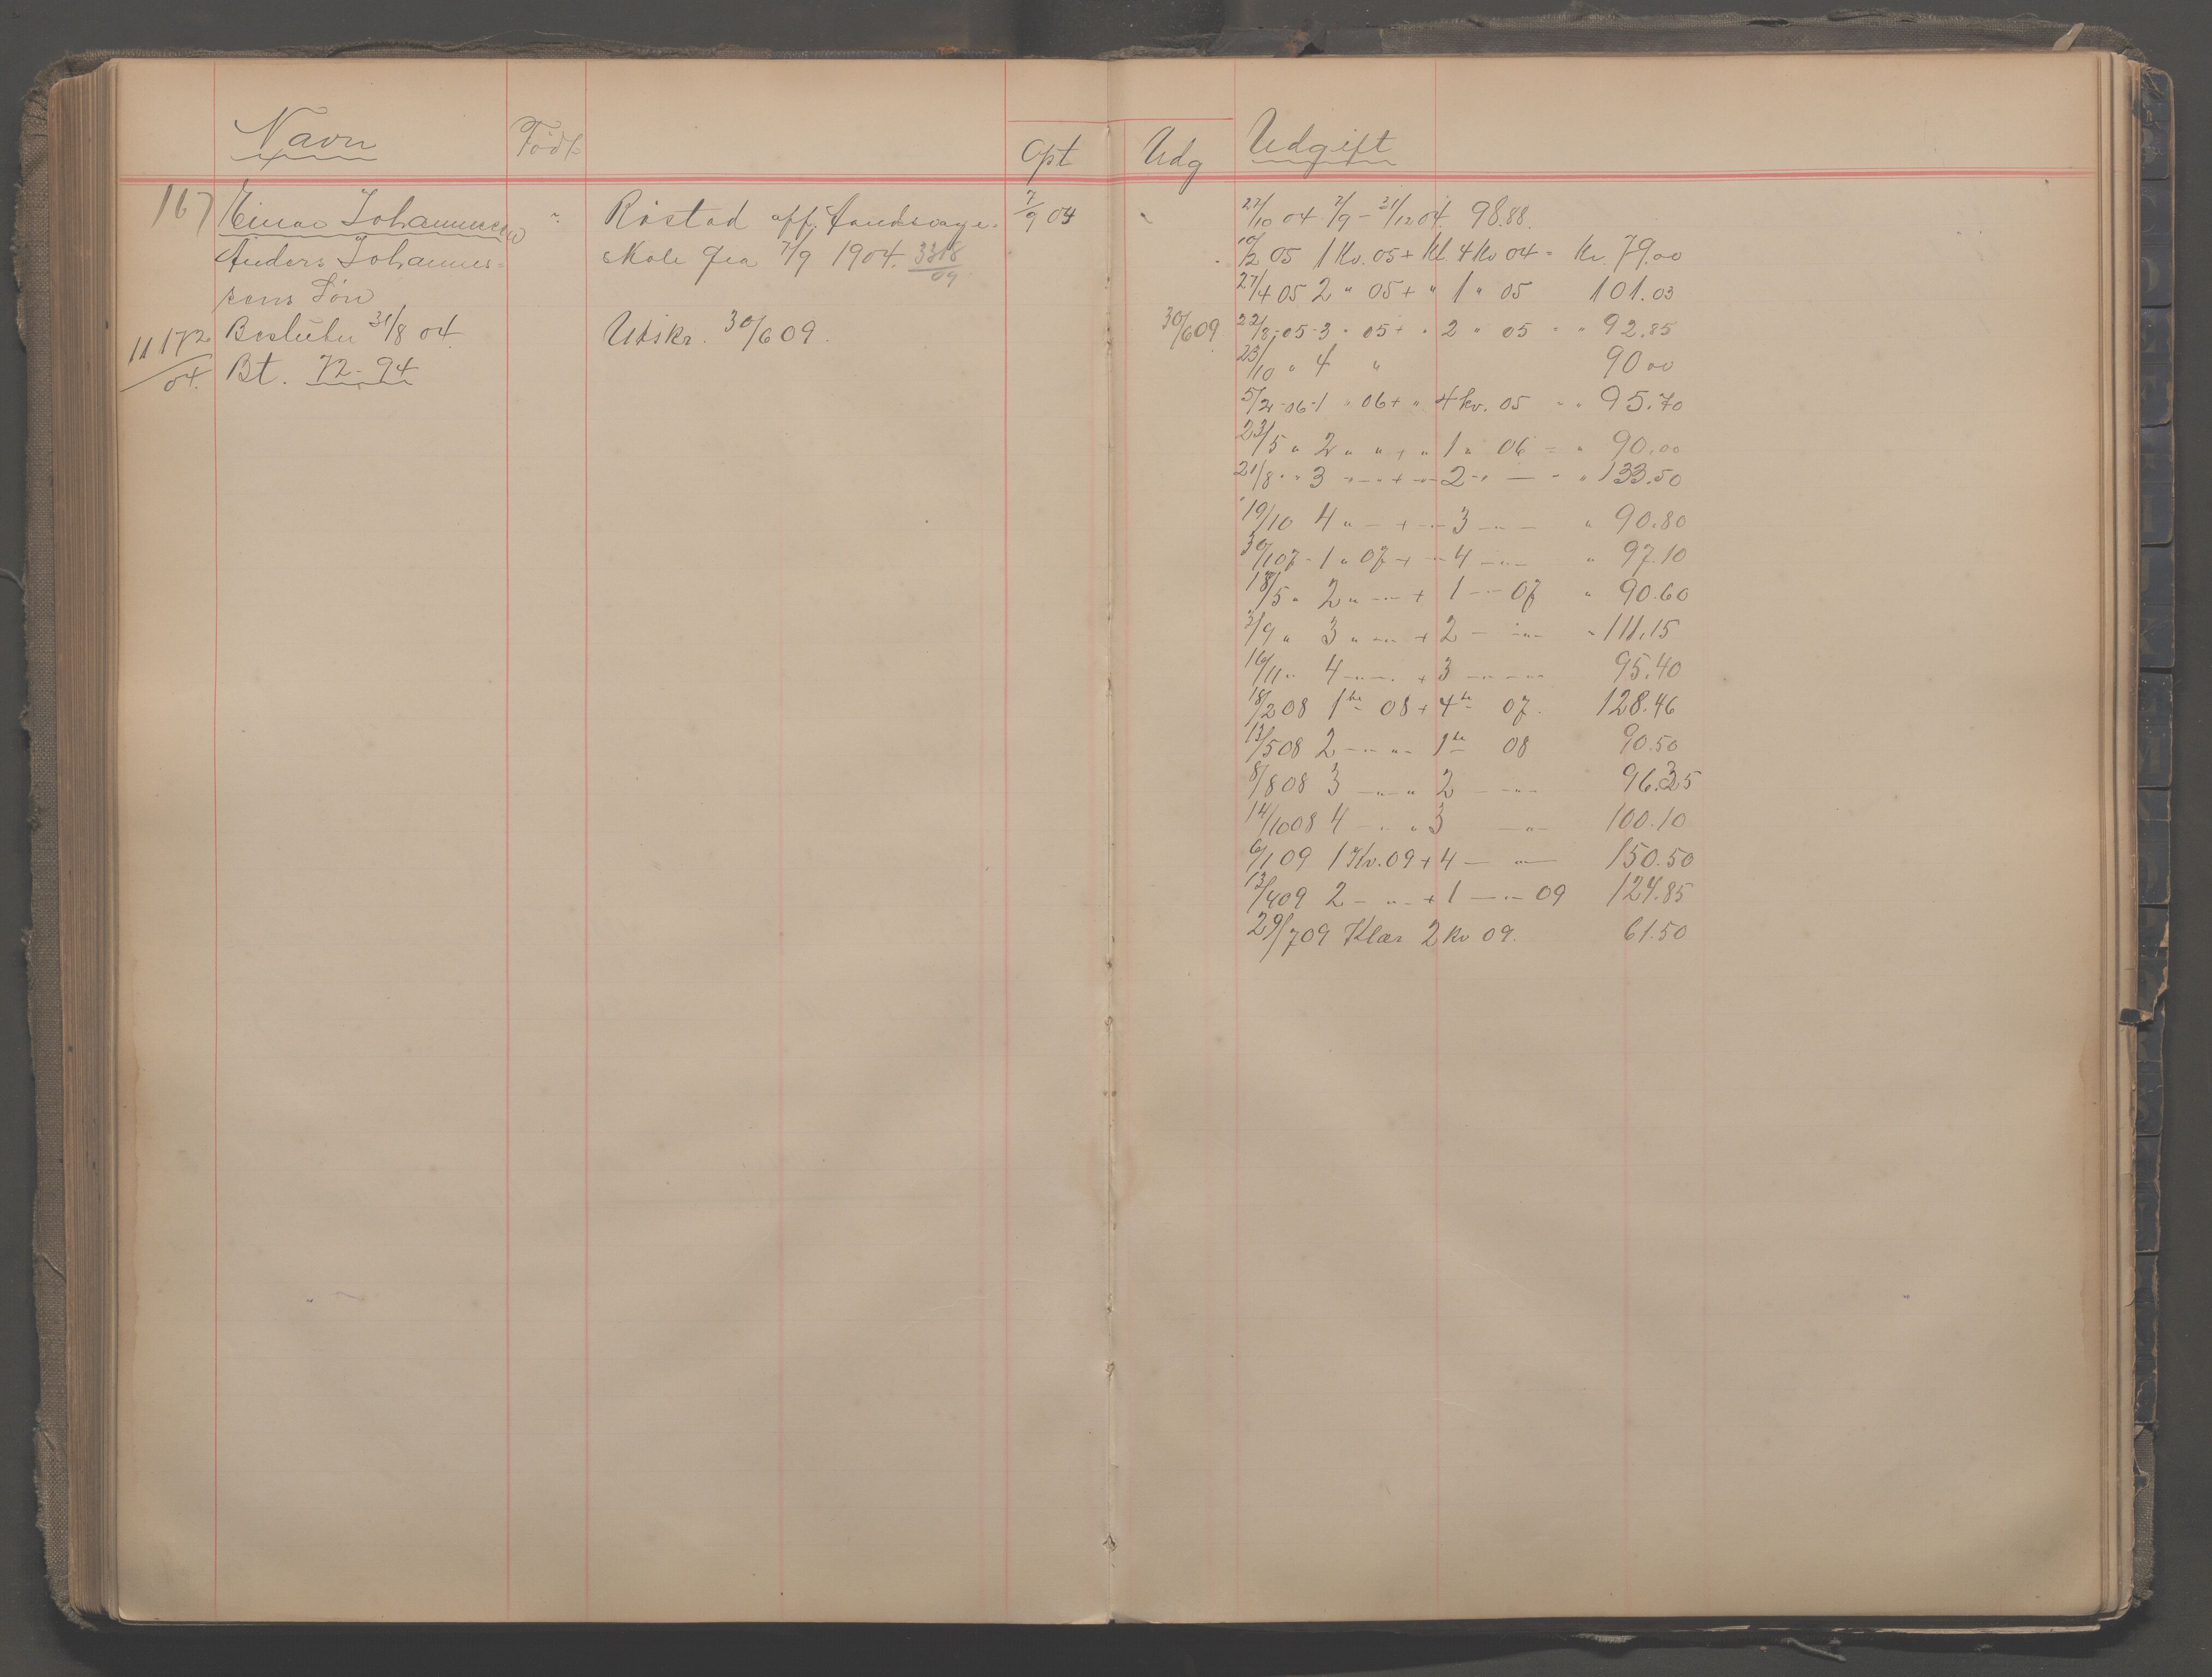 Navn Født Opt Udg Udgift
167 Einar Johannessen Røstad off. Aandssvage- 7/9 04
Anders Johannes- skole fra 7/9 1904. 3318/09
sens Søn
11172/04 Beslutn 31/8 04. Utskr. 30/6 09. 30/6 09
Bt. 72-94
27/10 04 7/9 - 31/12 04. 98.88.
10/2 05 1 Kv. 05 + Kl. 4 Kv 04 = Kr. 79.00
27/4 05 2 " 05 + " 1 " 05 101.03
22/8-05-3 " 05 + " 2 " 05 = " 92.85
23/10 " 4 " 90 00
5/2-06-1 " 06 + " 4 kv. 05 - " 95.70
23/5 " 2 " " + " 1 " 06 = " 90.00
21/8 " " 3 -"- + -"- 2 -"- - " 133.50
19/10 4 " - + -"- 3 -"- " 90.80
30/1 07 - 1 " 07 + -"- 4 -"- " 97.10
18/5 " 2 " -"- + 1 -"- 07 " 90.60
3/9 " 3 " -"- + 2 - -"- " 111.15
16/11 " 4 -"- + 3 -"- -"- 95.40
18/2 08 1te 08 + 4te 07. 128.46
13/5 08 2 -"- "- 1te 08 90.50
8/8 08 3 -"- " 2 -"- 96.35
14/10 08 4 -"- " 3 -"- 100.10
6/1 09 1 Kv. 09 + 4 - -"- 150.50
13/4 09 2 - "- + 1 -"- 09 124.85
29/7 09 Klær 2 kv 09. 61.50